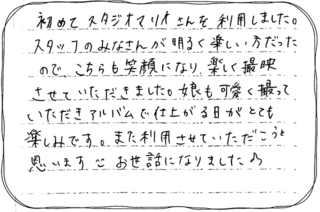 初めてスタジオマリオさんを利用しました。
スタッフのみなさんが明るく楽しい方だった
ので、こちらも笑顔になり、楽しく撮映
させていただきました。娘も可愛く撮って
いただきアルバムで仕上がる日がとても
楽しみです。また利用させていただこうと
思います お世話になりました